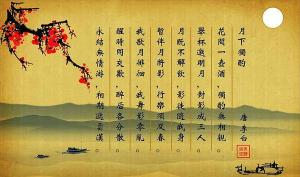 月下獨酌
唐 李白
花間一壺酒,獨酌無相親。
舉杯邀明月,對影成三人。
月既不解飲,影徒隨我身。
暫伴月將影,行樂須及春。
我歌月徘徊,我舞影零亂。
醒時同交歡,醉后各分散。
永結無情游,相期邈雲漢。